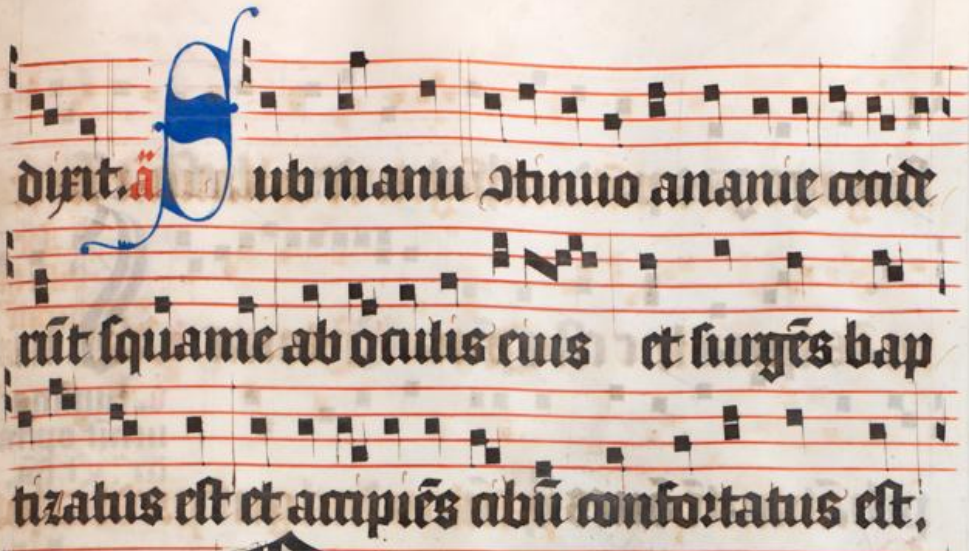 dixit. a Sub manu ↄtinuo ananie cecide
rūt squame ab oculis eius et surgēs bap
tizatus est et accipiēs cibū confortatus est.